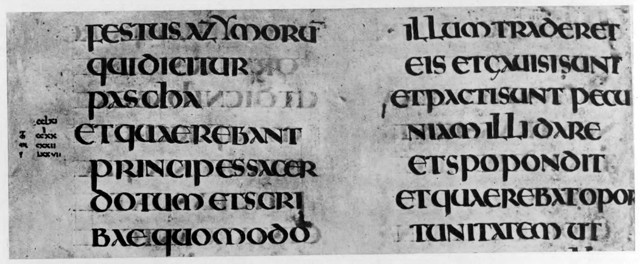 FESTUS AZYMORŪ
QUI DICITUR
PASCHA
ET QUAEREBANT
PRINCIPES SACER
DOTUM ET SCRI
BAE QUOMODO
ILLUM TRADERET
EIS ET GAUISI SUNT
ET PACTI SUNT PECU
NIAM ILLI DARE
ET SPOPONDIT
ET QUAEREBAT OPOR
TUNITATEM UT